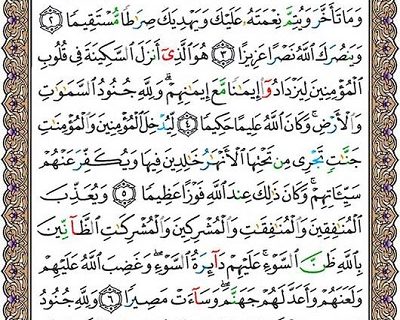 وَمَا تَأَخَّرَ وَيُتِمَّ نِعْمَتَهُۥ عَلَيْكَ وَيَهْدِيَكَ صِرَٰطًا مُّسْتَقِيمًا ٢
وَيَنصُرَكَ ٱللَّهُ نَصْرًا عَزِيزًا ٣ هُوَ ٱلَّذِىٓ أَنزَلَ ٱلسَّكِينَةَ فِى قُلُوبِ
ٱلْمُؤْمِنِينَ لِيَزْدَادُوٓا۟ إِيمَٰنًا مَّعَ إِيمَٰنِهِمْ ۗ وَلِلَّهِ جُنُودُ ٱلسَّمَٰوَٰتِ
وَٱلْأَرْضِ ۚ وَكَانَ ٱللَّهُ عَلِيمًا حَكِيمًا ٤ لِّيُدْخِلَ ٱلْمُؤْمِنِينَ وَٱلْمُؤْمِنَٰتِ
جَنَّٰتٍ تَجْرِى مِن تَحْتِهَا ٱلْأَنْهَٰرُ خَٰلِدِينَ فِيهَا وَيُكَفِّرَ عَنْهُمْ
سَيِّـَٔاتِهِمْ ۚ وَكَانَ ذَٰلِكَ عِندَ ٱللَّهِ فَوْزًا عَظِيمًا ٥ وَيُعَذِّبَ
ٱلْمُنَٰفِقِينَ وَٱلْمُنَٰفِقَٰتِ وَٱلْمُشْرِكِينَ وَٱلْمُشْرِكَٰتِ ٱلظَّآنِّينَ
بِٱللَّهِ ظَنَّ ٱلسَّوْءِ ۚ عَلَيْهِمْ دَآئِرَةُ ٱلسَّوْءِ ۖ وَغَضِبَ ٱللَّهُ عَلَيْهِمْ
وَلَعَنَهُمْ وَأَعَدَّ لَهُمْ جَهَنَّمَ ۖ وَسَآءَتْ مَصِيرًا ٦ وَلِلَّهِ جُنُودُ